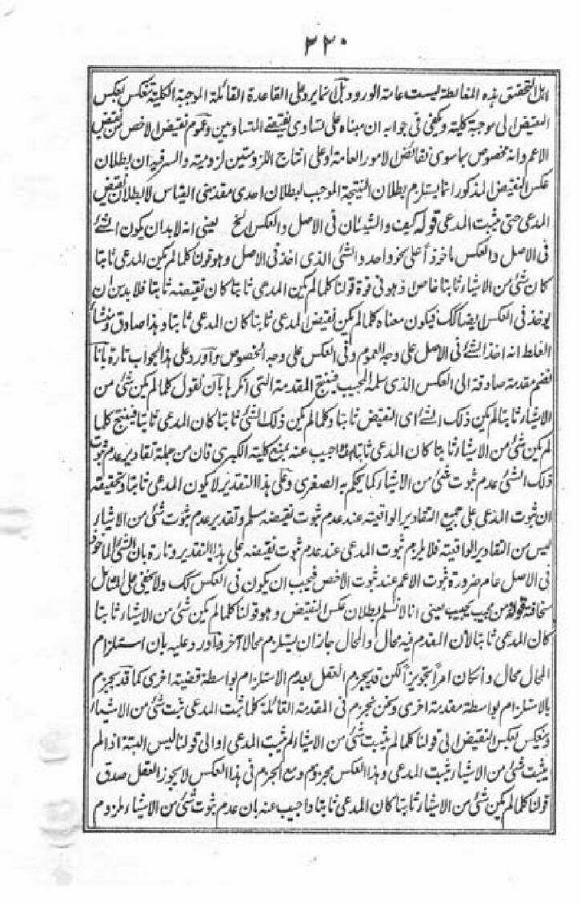 ٢٣٠
اهل التحقيق هذه المغالطة ليست عامة الورود بل انما يرد على القاعدة القائلة الموجبة الكلية تنعكس بعكس
النقيض الى موجبة كلية ويكفى فى جوابه ان مبناه على تساوى نقيضى المتساويين وعموم نقيض الاخص من نقيض
الاعم وانه مخصوص بما سوى نقائض الامور العامة او على انتاج اللزوميتين لزومية والسر فيه ان بطلان
عكس النقيض المذكور انما يستلزم بطلان النتيجة الموجب لبطلان احدى مقدمتى القياس لا لبطلان نقيض
المدعى حتى يثبت المدعى قوله كيف والشيئان فى الاصل والعكس الخ يعنى انه لابد ان يكون الشئ
فى الاصل والعكس ماخوذا على نحو واحد والشئ الذى اخذ فى الاصل وهو قولنا كلما لم يكن المدعى ثابتا
كان شئ من الاشياء ثابتا خاص وهو فى قوة قولنا كلما لم يكن المدعى ثابتا كان نقيضه ثابتا فلابد من ان
يوخذ فى العكس ايضا كك فيكون معناه كلما لم يكن نقيض المدعى ثابتا كان المدعى ثابتا وهذا صادق ومنشأ
الغلط انه اخذ الشئ فى الاصل على وجه العموم وفى العكس على وجه الخصوص واورد على هذا الجواب تارة بانا
نضم مقدمة صادقة الى العكس الذى سلمه المجيب فينتج المقدمة التى انكرها بان نقول كلما لم يكن شئ من
الاشياء ثابتا لم يكن ذلك الشئ اى النقيض ثابتا وكلما لم يكن ذلك الشئ ثابتا كان المدعى ثابتا فينتج كلما
لم يكن شئ من الاشياء ثابتا كان المدعى ثابتا هف واجيب عنه بمنع كلية الكبرى فان من جملة تقادير عدم ثبوت
ذلك الشئ عدم ثبوت شئ من الاشياء كما يحكم به الصغرى وعلى هذا التقدير لا يكون المدعى ثابتا وتحقيقه
ان ثبوت المدعى على جميع التقادير الواقعية عند عدم ثبوت نقيضه مسلم وتقدير عدم ثبوت شئ من الاشياء
ليس من التقادير الواقعية فلا يلزم ثبوت المدعى عند عدم ثبوت نقيضه على هذا التقدير وتارة بان الشئ الماخوذ
فى الاصل عام ضرورة ثبوت الاعم عند ثبوت الاخص فيجب ان يكون فى العكس كك ولا يخفى على المتامل
سخافته قوله من يجيب يعنى انا لا نسلم بطلان عكس النقيض وهو قولنا كلما لم يكن شئ من الاشياء ثابتا
كان المدعى ثابتا لان المقدم فيه محال والمحال جاز ان يستلزم محالا آخر واورد عليه بان استلزام
المحال محال وان كان امرا تجويزيا لكن قد يجزم العقل بعدم الاستلزام بواسطة قضية اخرى كما قد يجزم
بالاستلزام بواسطة مقدمة اخرى ونحن نجزم فى المقدمة القائلة كلما ثبت المدعى ثبت شئ من الاشياء
وينعكس بعكس النقيض الى قولنا كلما لم يثبت شئ من الاشياء لم يثبت المدعى او الى قولنا ليس البتة اذا لم
يثبت شئ من الاشياء ثبت المدعى وهذا العكس مجزوم ومع الجزم فى هذا العكس لا يجوز العقل صدق
قولنا كلما لم يكن شئ من الاشياء ثابتا كان المدعى ثابتا واجيب عنه بان عدم ثبوت شئ من الاشياء ملزوم